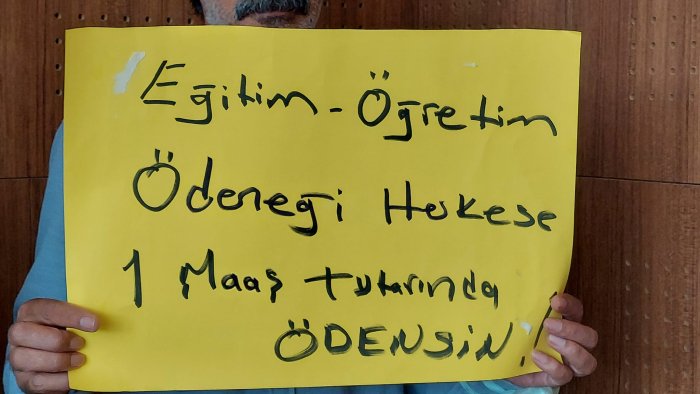 Eğitim - Öğretim
Ödeneği Hekese
1 Maaş tutarında
ÖDENSİN!